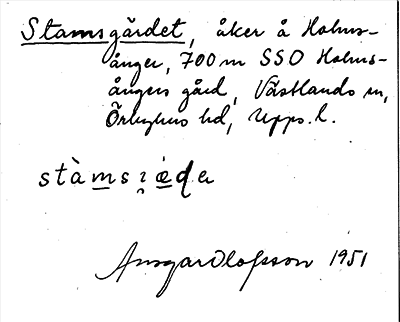 Stamsgärdet, åker å Holms-
ånger, 700 m SSO Holms-
ångers gård, Västlands sn,
Örbyhus hd, Upps. l.
stàmsɿæ̀dɐ
Ansgar Olofsson 1951